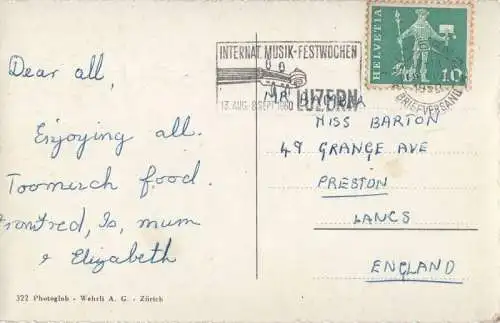 Dear all,
Enjoying all.
Toomerch food.
Is, mum
& Elizabeth
322 Photoglob - Wehrli A. G. - Zürich
INTERNAT. MUSIK-FESTWOCHEN
13. AUG.-8. SEPT. 1960 LUZERN
HELVETIA
10
BRIEFVERSAND
MR
MISS BARTON
49 GRANGE AVE
PRESTON
LANCS
ENGLAND